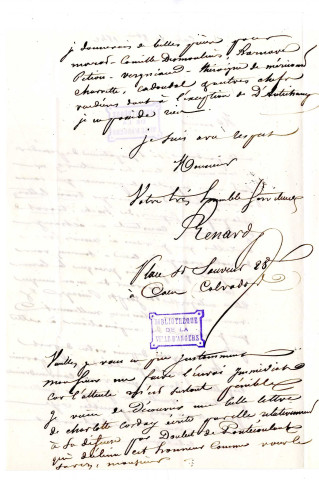 je donnerais de belles pièces pour
marat - Camille Desmoulins, Barnave
Pétion - vergniaud - théroigne de méricourt
charrette, cadoudal & autres chefs
vendéens dont à l'exception de D'Autichamp
je ne possède rien
je suis avec respect
Monsieur
Votre très humble serviteur
Renard
Place St Sauveur 28
à Caen Calvados
BIBLIOTHÈQUE
DE LA
VILLE D'ANGERS
Veuillez je vous en prie
monsieur me faire l'envoi
car l'attente est surtout pénible
je viens de découvrir une belle lettre
de charlotte corday écrite par elle relativement
à sa défense par Doulcet de Pontécoulant
qui déclina cet honneur comme vous le
savez, monsieur